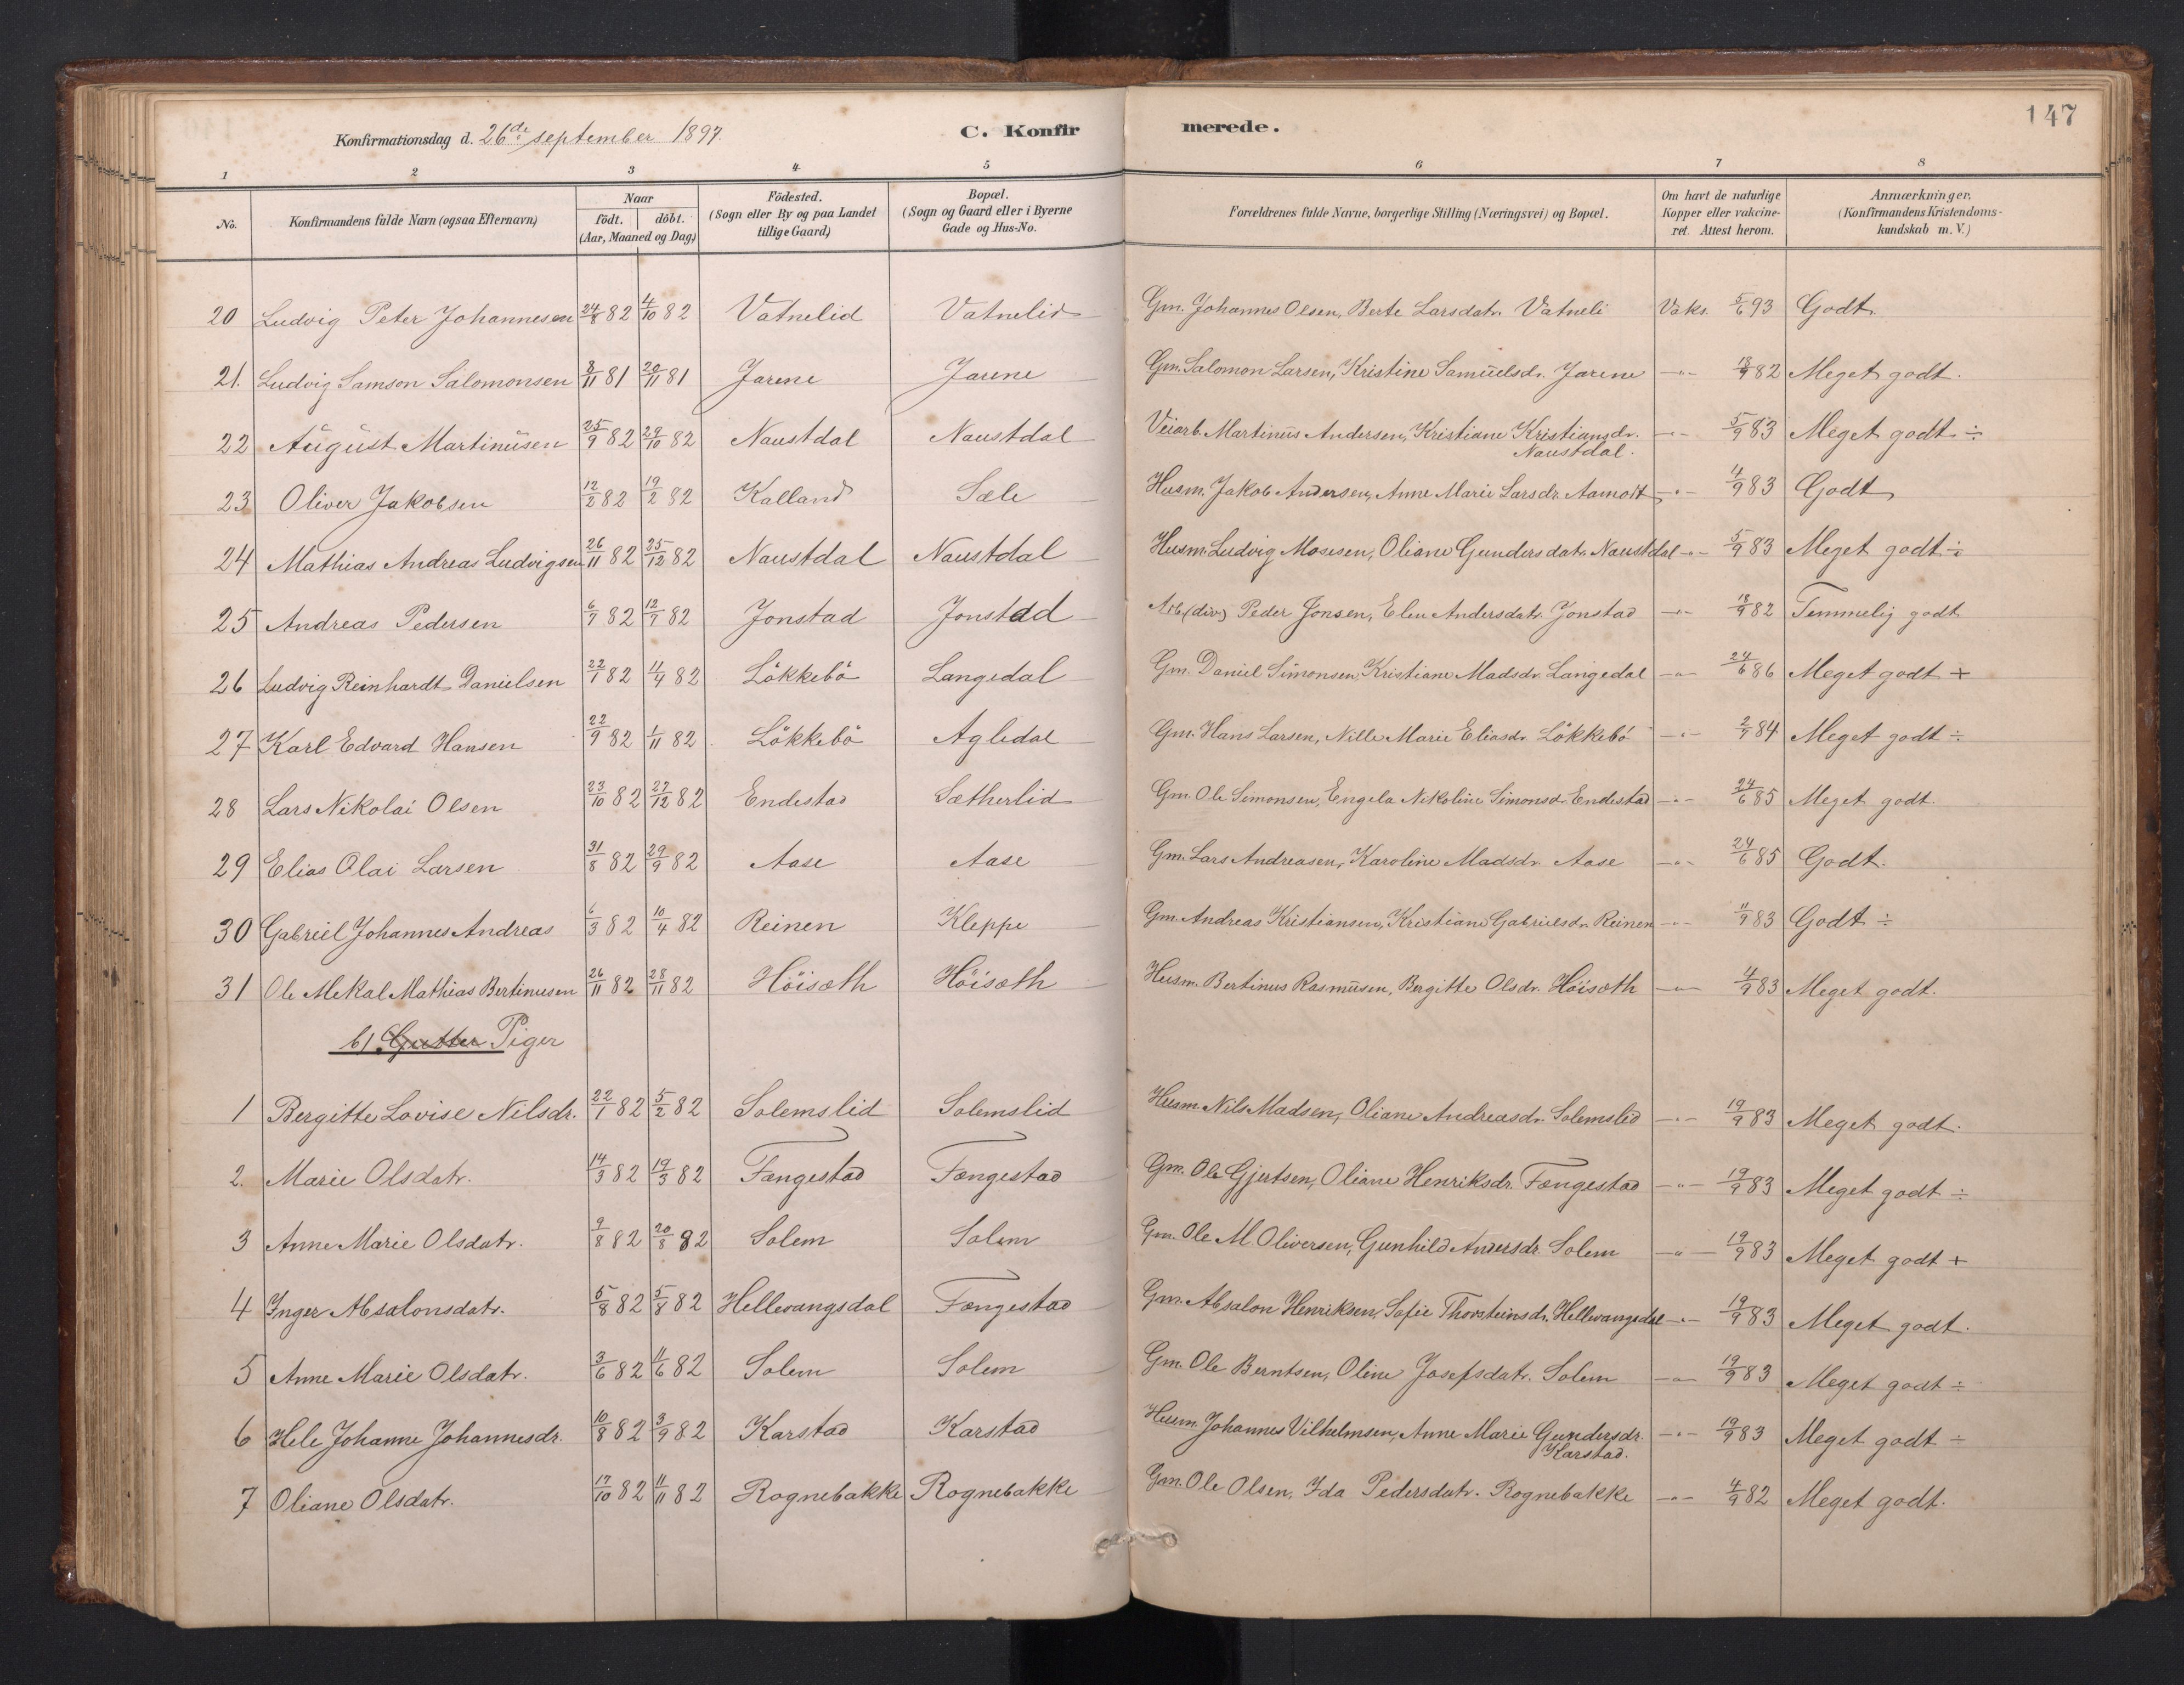 147
Konfirmationsdag d. 26de september 1897.
C. Konfirmerede.
1 2 3 4 5 6 7 8
No.
Konfirmandens fulde Navn (ogsaa Efternavn)
Naar
födt. döbt.
(Aar, Maaned og Dag)
Födested.
(Sogn eller By og paa Landet
tillige Gaard)
Bopæl.
(Sogn og Gaard eller i Byerne
Gade og Hus-No.
Forældrenes fulde Navne, borgerlige Stilling (Næringsvei) og Bopæl.
Om havt de naturlige
Kopper eller vakcine-
ret. Attest herom.
Anmærkninger.
(Konfirmandens Kristendoms-
kundskab m. V.)
20 Ludvig Peter Johannesen 24/8 82 4/10 82 Vatnelid Vatnelid Gm. Johannes Olsen, Berte Larsdatr. Vatneli Vaks. 5/6 93 Godt.
21. Ludvig Samson Salomonsen 8/11 81 20/11 81 Jarene Jarene Gm. Salomon Larsen, Kristine Samuelsdr. Jarene —"— 18/9 82 Meget godt.
22 August Martinusen 25/9 82 29/10 82 Naustdal Naustdal Veiarb. Martinus Andersen, Kristiane Kristiansdr. —"— 5/9 83 Meget godt ÷
Naustdal.
23 Oliver Jakobsen 12/2 82 19/2 82 Kalland Sæle Husm. Jakob Andersen, Anne Marie Larsdr. Aamott —"— 4/9 83 Godt
24 Mathias Andreas Ludvigsen 26/11 82 25/12 82 Naustdal Naustdal Husm. Ludvig Mosesen, Oliane Gundersdatr. Naustdal —"— 5/9 83 Meget godt ÷
25 Andreas Pedersen 6/7 82 12/7 82 Jonstad Jonstad Arb. (div) Peder Jonsen, Elen Andersdatr. Jonstad —"— 18/9 82 Temmelig godt
26 Ludvig Reinhardt Danielsen 22/1 82 11/4 82 Lökkebö Langedal Gm. Daniel Simonsen, Kristiane Madsdr. Langedal —"— 24/6 86 Meget godt +
27 Karl Edvard Hansen 22/9 82 1/11 82 Lökkebö Agledal Gm. Hans Larsen, Nille Marie Eliasdr. Lökkebö —"— 2/9 84 Meget godt ÷
28 Lars Nikolai Olsen 23/10 82 27/12 82 Endestad Sætherlid Gm. Ole Simonsen, Engela Nikoline Simonsd. Endestad —"— 24/6 85 Meget godt.
29 Elias Olai Larsen 31/8 82 29/9 82 Aase Aase Gm. Lars Andreasen, Karoline Madsdr. Aase —"— 24/6 85 Godt.
30 Gabriel Johannes Andreas 6/3 82 10/4 82 Reinen Kleppe Gm. Andreas Kristiansen, Kristiane Gabrielsdr. Reinen —"— 11/9 83 Godt ÷
31 Ole Mekal Mathias Bertinusen 26/11 82 28/11 82 Höisæth Höisæth Husm. Bertinus Rasmusen, Bergitte Olsdr. Höisæth —"— 4/9 83 Meget godt.
b) Gutter Piger
1 Bergitte Lovise Nilsdr. 22/1 82 5/2 82 Solemslid Solemslid Husm. Nils Madsen, Oliane Andreasdr. Solemslid —"— 19/9 83 Meget godt.
2. Marie Olsdatr. 14/3 82 19/3 82 Fængestad Fængestad Gm. Ole Gjertsen, Oliane Henriksdr. Fængestad —"— 19/9 83 Meget godt ÷
3 Anne Marie Olsdatr. 9/8 82 20/8 82 Solem Solem Gm. Ole M. Oliversen, Gunhild Andersdr. Solem —"— 19/9 83 Meget godt +
4 Inger Absalonsdatr. 5/8 82 5/8 82 Hellevangsdal Fængestad Gm. Absalon Henriksen, Sofie Thorsteinsdr. Hellevangsdal —"— 19/9 83 Meget godt.
5 Anne Marie Olsdatr. 3/6 82 11/6 82 Solem Solem Gm. Ole Berntsen, Oline Josefsdatr. Solem —"— 19/9 83 Meget godt ÷
6 Hele Johanne Johannesdr. 10/8 82 3/9 82 Karstad Karstad Husm. Johannes Vilhelmsen, Anne Marie Gundersdr. —"— 19/9 83 Meget godt ÷
Karstad.
7 Oliane Olsdatr. 17/10 82 11/11 82 Rognebakke Rognebakke Gm. Ole Olsen, Ida Pedersdatr. Rognebakke —"— 4/9 82 Meget godt.